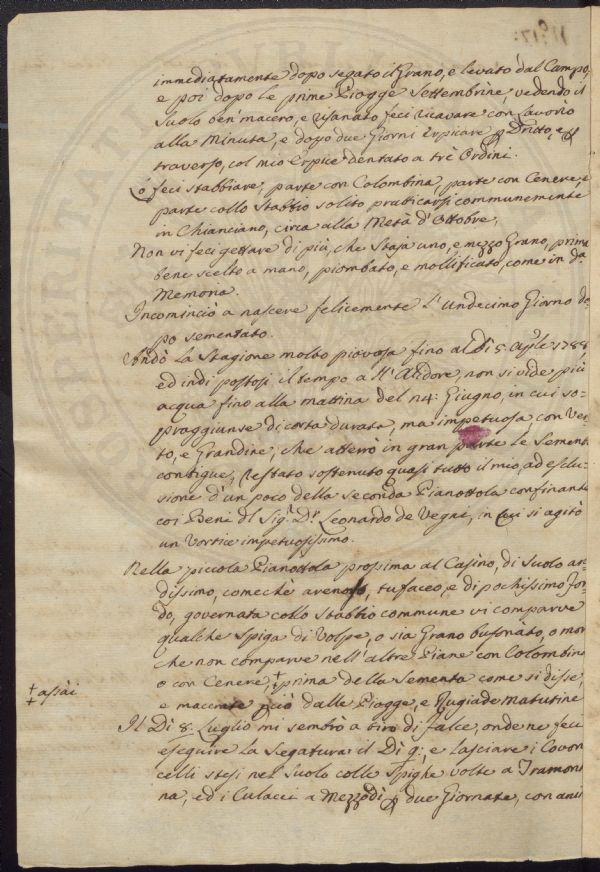 immediatamente dopo segato il Grano, e levato dal Campo,
e poi dopo le prime Piogge Settembrine, vedendo il
Suolo ben' macero, e risanato feci ricavare con Lavorìo
alla Minuta, e dopo due Giorni Erpicare p Dritto, e p
traverso, col mio Erpice dentato a trè Ordini.
Lo feci stabbiare, parte con Colombina, parte con Cenere, e
parte collo Stabbio solito praticarsi communemente
in Chianciano, circa alla Metà d'Ottobre,
Non vi feci gettare di più, che Staja uno, e mezzo Grano, prima
bene scelto a mano, piombato, e mollificato, come in da
Memoria.
Incominciò a nascere felicemente l'undecimo Giorno do-
po sementato.
Andò la Stagione molto piovosa fino al Dì 5. Aple 1788
ed indi postosi il tempo a ll'Alidore, non si vide più
acqua fino alla mattina del n4: Giugno, in cui so-
praggiunse di corta durata, ma impetuosa, con Ven
to, e Grandine, che atterrò in gran parte le Sement
contigue, restato sostenuto quasi tutto il mio, ad esclu-
sione d'un poco della seconda Pianottola confinante
coi Beni dl Sigr Dr. Leonardo de Vegni, in cui si agitò
un Vortice impetuosissimo.
Nella piccola Pianottola prossima al Casino, di Suolo ar-
dissimo, comechè arenoso, tufaceo, e di pochissimo fon-
do, governata collo stabbio commune vi comparve
qualche Spiga di Volpe, o sia Grano bufonato, o mor
che non comparve nell'altre Piane con Colombina
o con Cenere, ‡ prima della Sementa come si disse,
‡ assài
e macerate più dalle Piogge, e Rugiade Matutine
Il Dì 8. Luglio mi sembrò a tiro di falce, onde ne feci
eseguire la Segatura il Dì 9: e lasciare i Covon
celli stesi nel Suolo colle Spighe volte a Tramon
na, ed i Culacci a Mezzodì p due Giornate, con